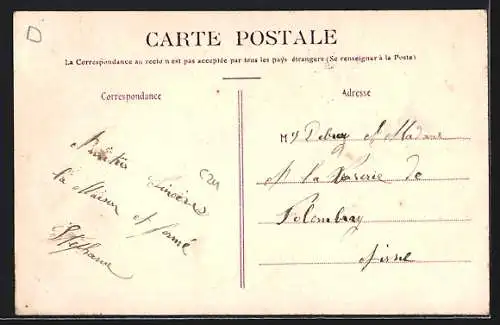 D
CARTE POSTALE
La Correspondance au recto n'est pas acceptée par tous les pays étrangers (Se renseigner à la Poste)
Correspondance
Adresse
Amitiés Sincères
La Maison et
Stéphane
Mr Debray et Madame
à la de
Folembray
Aisne